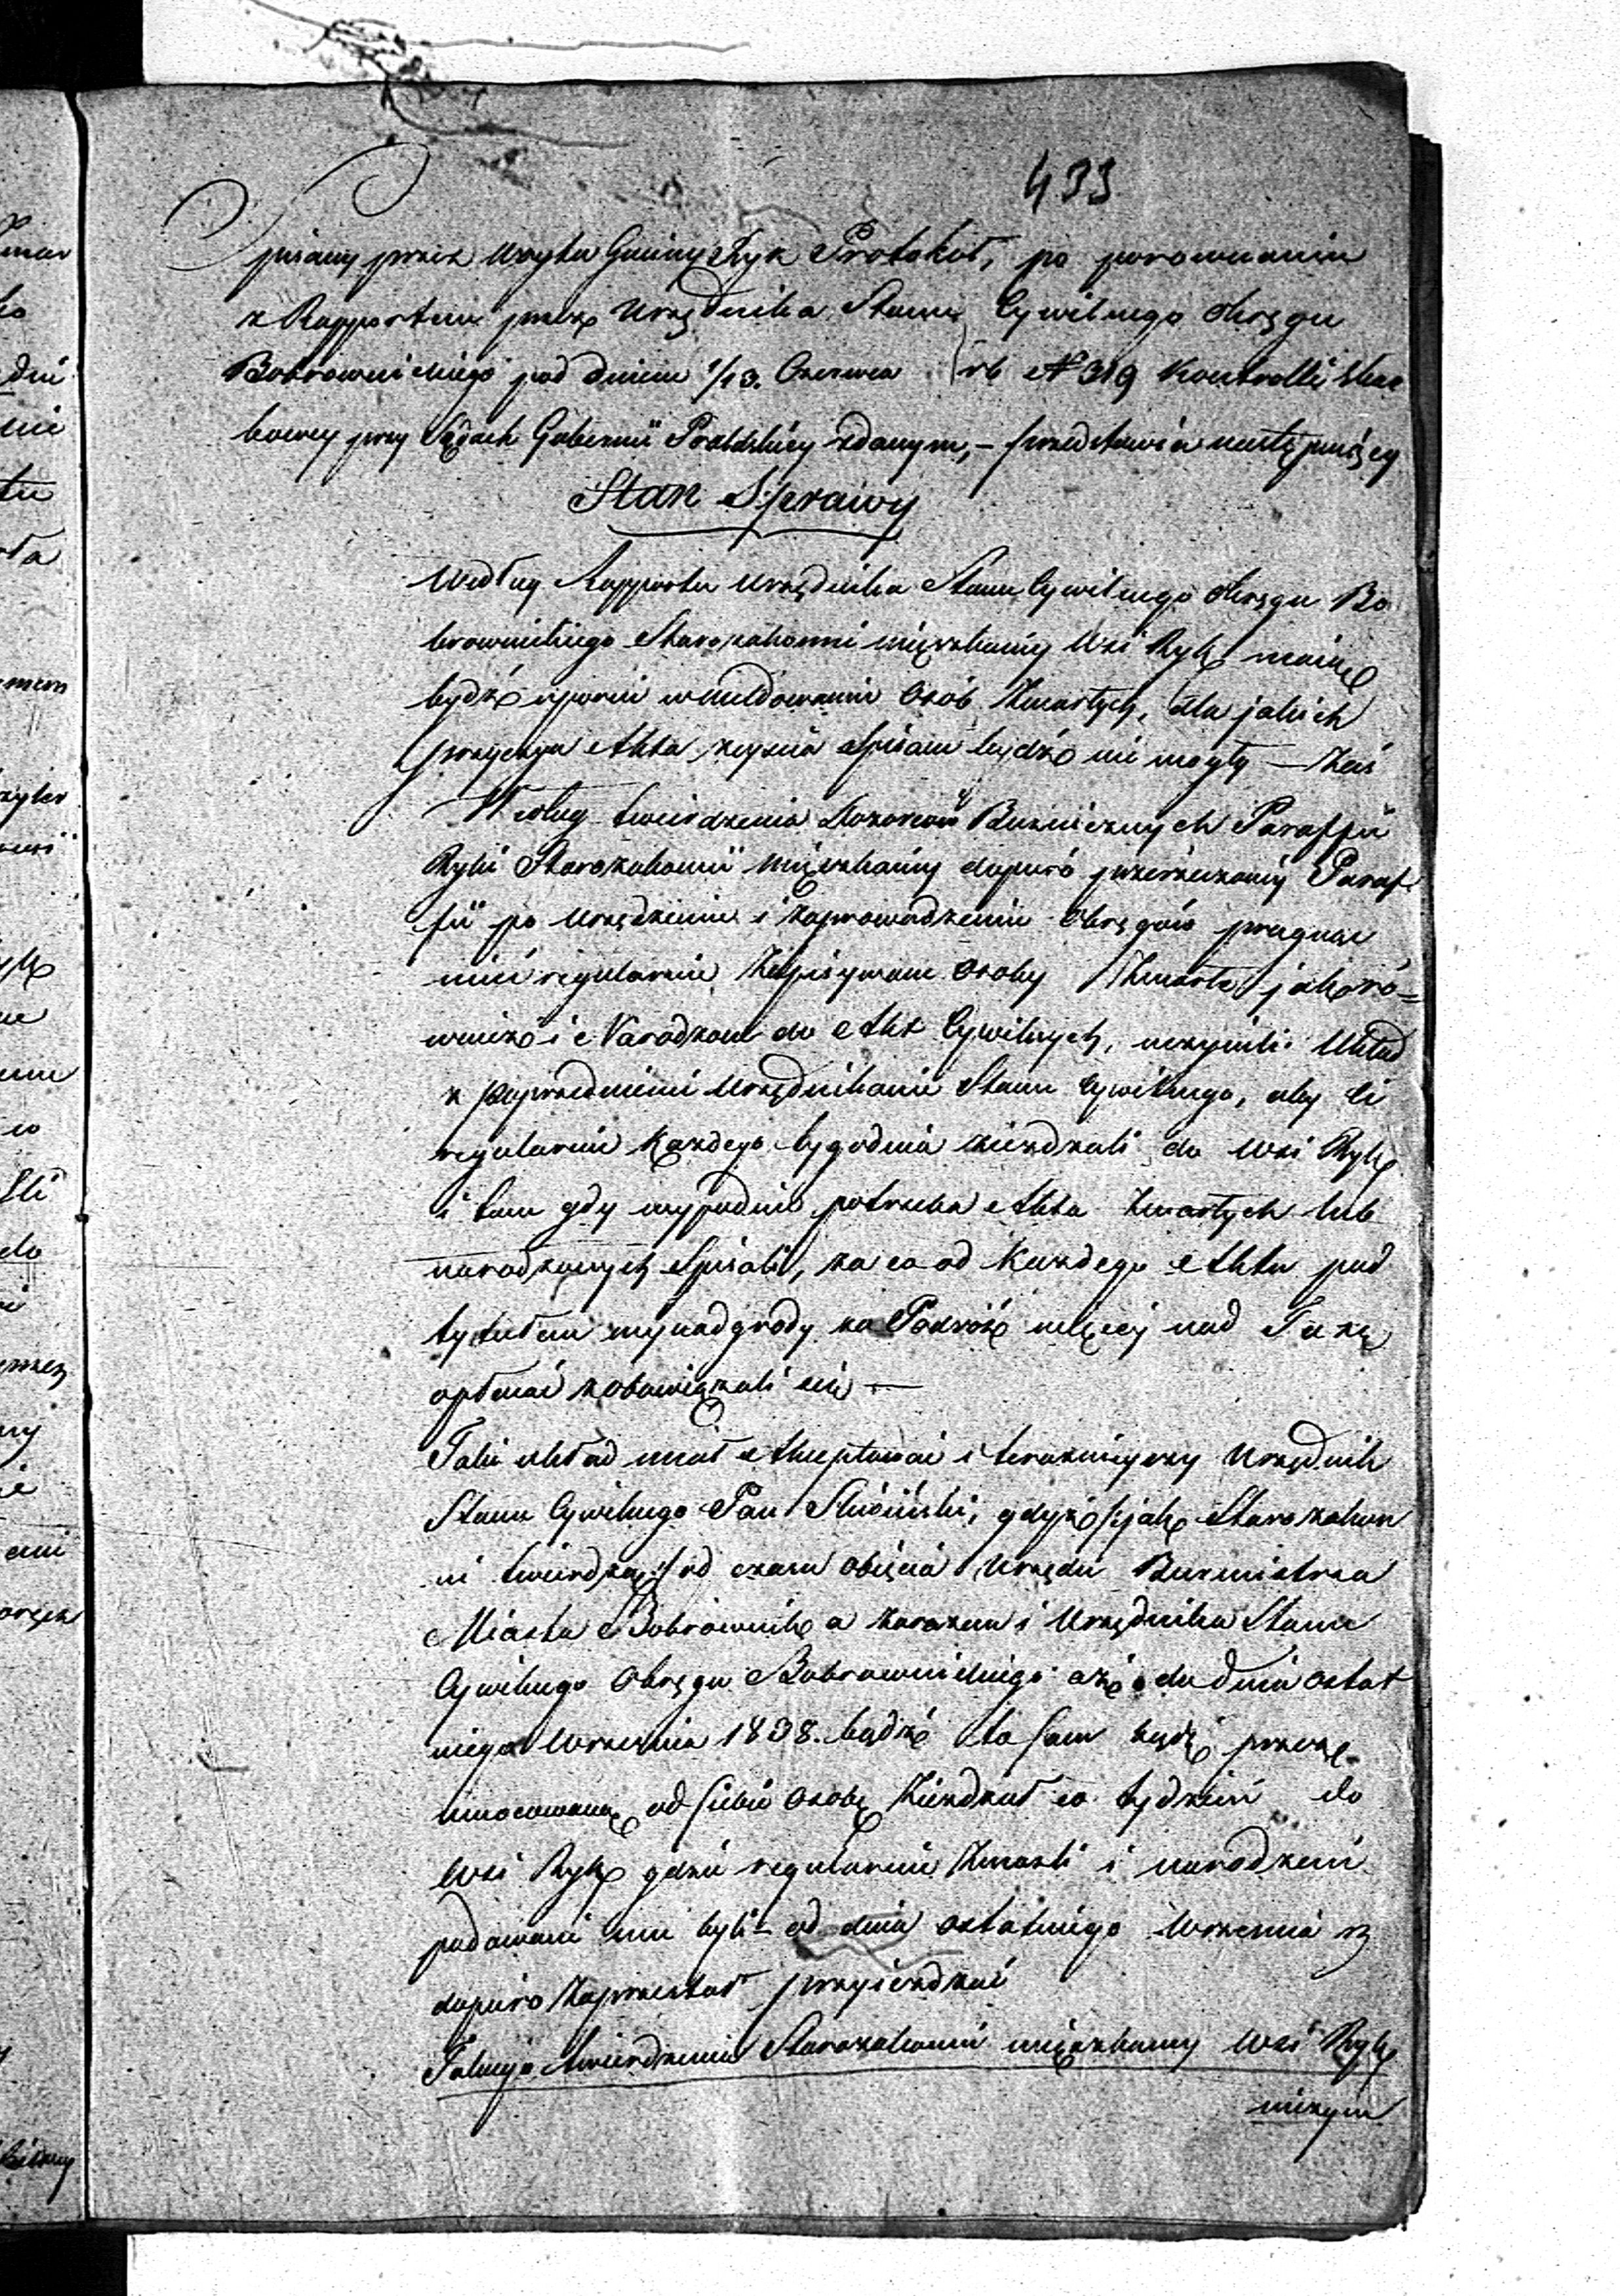 433
Spisany przez Wóyta Gminy Ryk Protokół, po porównaniu
z Rapportem przez Urzędnika Stanu Cywilnego Okręgu
Bobrownickiego pod dniem 1/13. Czerwca rb N 319 Kontrolli Skar
bowey przy Sądach Gubernii Podlaskiey zdanym, – przedstawia następuiący
Stan Sprawy
Według Rapportu Urzędnika Stanu Cywilnego Okręgu Bo
brownickiego Starozakonni mięszkańcy Wsi Ryk maią
bydź uporni w meldowaniu Osób Zmarłych, dla jakich
przyczyn Akta zeyścia spisane bydź nie mogły – Zaś
Według twierdzenia Dozorców Bużnicznych Paraffii
Ryki Starozakonni mięszkańcy dopiero przerzeczoney Paraf
fii po urządzeniu i zaprowadzeniu Okręgów pragnąc
mieć regularnie Zapisywane Osoby Zmarłe jako ró=
wnież i Narodzone do Akt Cywilnych, uczynili Układ
z poprzedniemi Urzędnikami Stanu Cywilnego, aby Ci
regularnie Każdego tygodnia zieżdzali do Wsi Ryk
i tam gdy wypadnie potrzeba Akta Zmarłych lub
narodzonych Spisali, za co od Każdego Aktu pod
tytułem wynadgrody za Podróż więcey nad Taxę
opłacać zobowiązali się –
Taki układ miał Akceptować i teraznieyszy Urzędnik
Stanu Cywilnego Pan Śliwiński, gdyż /:jak Starozakon
ni twierdzą:/ od czasu Obięcia Urzędu Burmistrza
Miasta Bobrownik a zarazem i Urzędnika Stanu
Cywilnego Okręgu Bobrownickiego aż do dnia ostat
niego Września 1838. bądź to sam bądź przez
umocowaną od siebie Osobę Zieżdzał co tydzień do
Wsi Ryk gdzie regularnie Zmarli i narodzeni
podawani mu byli – od dnia ostatniego Września rz
dopiero Zaprzestał przyieżdzać
Takiego twierdzenia Starozakonni mięszkańcy Wsi Ryk
niczym